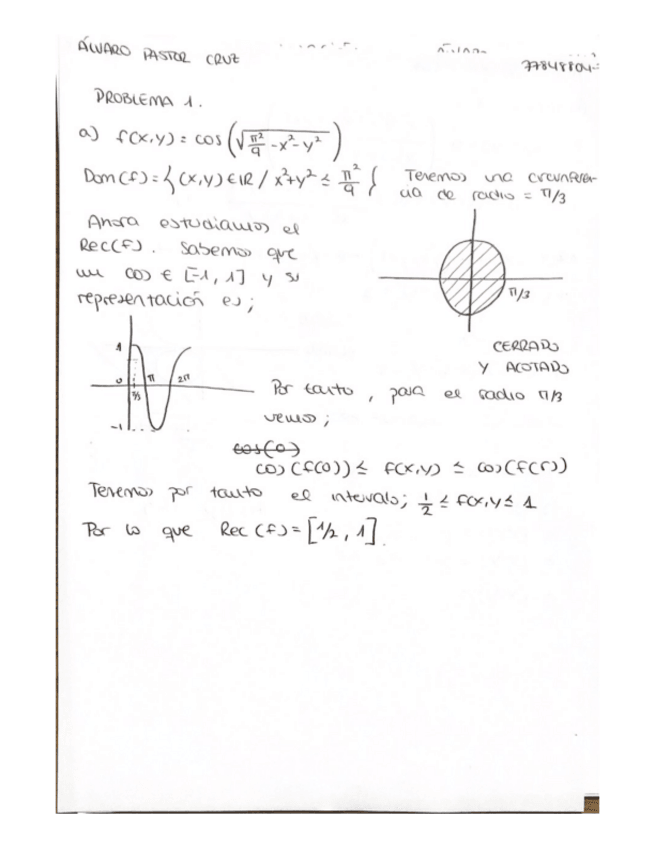 ÁLVARO PASTOR CRUZ
PROBLEMA 1.
a) f(x,y) = cos(√(π²/9 - x² - y²))
Dom(f) = {(x,y) ∈ IR / x²+y² ≤ π²/9} Tenemos una circunferen-
cia de radio = π/3
Ahora estudiamos el
Rec(f). Sabemos que
un cos ∈ [-1, 1] y su
representación es;
π/3
1
0 π/3 π 2π
-1
CERRADO
Y ACOTADO
Por tanto, para el radio π/3
vemos;
cos(0)
cos(f(0)) ≤ f(x,y) ≤ cos(f(r))
Tenemos por tanto el intervalo; 1/2 ≤ f(x,y ≤ 1
Por lo que Rec(f) = [1/2, 1].